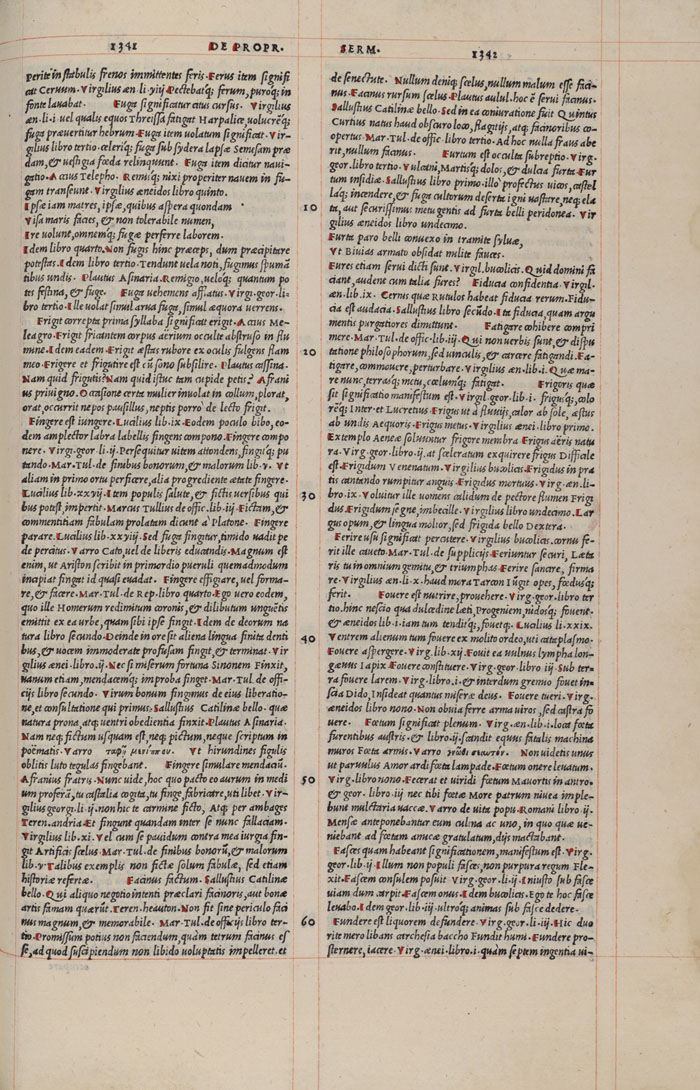 1341
DE PROPR.
SERM.
1342
perite in stabulis frenos immittentes feris. Ferus item signifi
cat Ceruum. Virgilius æn. li. viij Pectebatq; ferum, puroq; in
fonte lauabat. Fuga significatur citus cursus. Virgilius
æn. li. i. uel qualis equos Threissa fatigat Harpalice, uolucrēq;
fuga præuertitur hebrum. Fuga item uolatum significat. Vir-
gilius libro tertio. celeriq; fuga sub sydera lapsæ Semesam præ
dam, & uestigia fœda relinquunt. Fuga item dicitur naui-
gatio. Accius Telepho. Remisq; nixi properiter nauem in fu-
gam transeunt. Virgilius æneidos libro quinto.
Ipsæ iam matres, ipsæ, quibus aspera quondam
Visa maris facies, & non tolerabile numen,
Ire uolunt, omnemq; fugæ perferre laborem.
Idem libro quarto. Non fugis hinc præceps, dum præcipitare
potestas. Idem libro tertio. Tendunt uela noti, fugimus spumā
tibus undis. Plautus Asinaria. Remigio, ueloq; quantum po
tes festina, & fuge. Fuga uehemens affatus. Virg. geor. li-
bro tertio. Ille uolat simul arua fuga, simul æquora uerrens.
Frigit correpta prima syllaba significat erigit. Accius Me-
leagro. Frigit fricantem corpus atrum occulte abstruso in flu
mine. Idem eadem. Frigit æstas rubore ex oculis fulgens flam
meo. Frigere et frigutire est cū sono subsilire. Plautus cassina.
Nam quid frigutis? Nam quid istuc tam cupide petis? Afrani
us priuigno. Occasione certe mulier inuolat in collum, plorat,
orat, occurrit nepos pausillus, neptis porro de lecto frigit.
Fingere est iungere. Lucilius lib. ix. Eodem poculo bibo, eo-
dem amplector labra labellis fingens compono. Fingere compo
nere. Virg. geor. li. ij. Persequitur uitem attondens, fingitq; pu
tando. Mar. Tul. de finibus bonorum, & malorum lib. v. Vt
aliam in primo ortu perficere, alia progrediente ætate fingere.
Lucilius lib. xxvij. Item populis salute, & fictis uersibus qui
bus potest, impertit. Marcus Tullius de offic. lib. iij. Fictam, &
commentitiam fabulam prolatam dicunt à Platone. Fingere
parare. Lucilius lib. xxviij. Sed fuga fingitur, timido uadit pe
de percitus. Varro Cato, uel de liberis educandis. Magnum est
enim, ut Ariston scribit in primordio pueruli quemadmodum
incipiat fingi id quasi euadat. Fingere effigiare, uel forma-
re, & facere. Mar. Tul. de Rep. libro quarto. Ego uero eodem,
quo ille Homerum redimitum coronis, & dilibutum unguētis
emittit ex ea urbe, quam sibi ipse fingit. Idem de deorum na
tura libro secundo. Deinde in ore sit aliena lingua finita denti
bus, & uocem immoderate profusam fingit, & terminat. Vir
gilius ænei. libro. ij. Nec si miserum fortuna Sinonem Finxit,
uanum etiam, mendacemq; improba finget. Mar. Tul. de offi-
cijs libro secundo. Virum bonum fingimus de eius liberatio-
ne, et consultatione qui primus. Sallustius Catilinæ bello. quæ
natura prona, atq; uentri obedientia finxit. Plautus Asinaria.
Nam neq; fictum usquam est, neq; pictum, neque scriptum in
poëmatis. Varro Vt hirundines figulis
oblitis luto tegulas fingebant. Fingere simulare mendaciū.
Afranius fratris. Nunc uide, hoc quo pacto eo aurum in medi
um proferā, tu castalia cogita, tu finge, fabricare, uti libet. Vir-
gilius georgi. li. ij. non hic te carmine ficto, Atq; per ambages
Teren. andria. Et fingunt quandam inter se nunc fallaciam.
Virgilius lib. xi. Vel cum se pauidum contra mea iurgia fin-
git Artifici scelus. Mar. Tul. de finibus bonorū, & malorum
lib. v. Talibus exemplis non fictæ solum fabulæ, sed etiam
historiæ refertæ. Facinus factum. Sallustius Catilinæ
bello. Qui aliquo negotio intenti præclari facinoris, aut bonæ
artis famam quærūt. Teren. heauton. Non fit sine periculo faci
nus magnum, & memorabile. Mar. Tul. de officijs libro ter-
tio. Promissum potius non faciendum, quàm tetrum facinus es
se, ad quod suscipiendum non libido uoluptatis impelleret. et
10
20
30
40
50
60
de senectute. Nullum deniq; scelus, nullum malum esse faci-
nus. Facinus rursum scelus. Plautus aulul. hoc ē serui facinus.
Sallustius Catilinæ bello. Sed in ea coniuratione fuit Quintus
Curtius natus haud obscuro loco, flagitijs, atq; facinoribus co-
opertus. Mar. Tul. de offic. libro tertio. Ad hoc nulla fraus abe
rit, nullum facinus. Furtum est occulta subreptio. Virg.
geor. libro tertio. Vulcani, Martisq; dolos, & dulcia furta. Fur
tum insidiæ. Sallustius libro primo. illo profectus uicos, castel
laq; incendere, & fuga cultorum deserta igni uastare, neq; elа
ta, aut securissimus metu gentis ad furta belli peridonea. Vir
gilius æneidos libro undecimo.
Furta paro belli conuexo in tramite syluæ,
Vt Biuias armato obsidat milite fauces.
Fures etiam serui dicti sunt. Virgil. bucolicis. Quid domini fa
ciant, audent cum talia fures? Fiducia confidentia. Virgil.
æn. lib. ix. Cernis quæ Rutulos habeat fiducia rerum. Fidu-
cia est audacia. Sallustius libro secūdo. Ita fiducia, quam argu
mentis purgatiores dimittunt. Fatigare cohibere compri
mere. Mar. Tul. de offic. lib. iij. Qui non uerbis sunt, & dispu
tatione philosophorum, sed uinculis, & carcere fatigandi. Fa-
tigare, commouere, perturbare. Virgilius æn. lib. i. Quæ ma-
re nunc, terrasq; metu, cælumq; fatigat. Frigoris quæ
sit significatio manifestum est. Virgil. geor. lib. i. frigusq; colo
rēq; Inter. et Lucretius Frigus ut à fluuijs, calor ab sole, æstus
ab undis Aequoris. Frigus metus. Virgilius ænei. libro primo.
Extemplo Aeneæ soluuntur frigore membra Frigus aëris natu
ra. Virg. geor. libro. ij. at sceleratum exquirere frigus Difficile
est. Frigidum uenenatum. Virgilius bucolicis. Frigidus in pra
tis cantando rumpitur anguis. Frigidus mortuus. Virg. æn. li-
bro. ix. Voluitur ille uomens calidum de pectore flumen Frigi
dus. Frigidum segne, imbecille. Virgilius libro undecimo. Lar
gus opum, & lingua melior, sed frigida bello Dextera.
Ferire usu significat percutere. Virgilius bucolicis. cornu fe-
rit ille caueto. Mar. Tul. de supplicijs. Feriuntur securi, Læta
ris tu in omnium gemitu, & triumphas. Ferire sancire, firma
re. Virgilius æn. li. x. haud mora Tarcon Iūgit opes, fœdusq;
ferit. Fouere est nutrire, prouehere. Virg. geor. libro ter
tio. hinc nescio qua dulcedine læti, Progeniem, nidosq; fouent.
& æneidos lib. i. iam tum tenditq; fouetq;. Lucilius li. xxix.
Ventrem alienum tum fouere ex molito ordeo, uti cataplasmo.
Fouere aspergere. Virg. lib. xij. Fouit ea uulnus lympha lon-
gæuus Iapix. Fouere constituere. Virg. geor. libro iij. Sub ter-
ra fouere larem. Virg. libro. i. & interdum gremio fouet in-
scia Dido, Insideat quantus miseræ deus. Fouere tueri. Virg.
æneidos libro nono. Non obuia ferre arma uiros, sed castra fo
uere. Fœtum significat plenum. Virg. æn. lib. i. loca fœta
furentibus austris. & libro. ij. scandit equus fatalis machina
muros Fœta armis. Varro Non uidetis unus
ut paruulus Amor ardifœta lampade. Fœtum onere leuatum.
Virg. libro nono. Fecerat et uiridi fœtam Mauortis in antro.
& geor. libro. iij nec tibi fœtæ More patrum niuea imple-
bunt mulctraria uaccæ. Varro de uita popu. Romani libro. ij.
Mensæ anteponebantur cum culina ac uino, in quo quæ ue-
niebant ad fœtam amicæ gratulatum, dijs mactabant.
Fasces quam habeant significationem, manifestum est. Virg.
geor. lib. ij. Illum non populi fasces, non purpura regum Fle-
xit. Fascem consulem posuit Virg. geor. li. iij. Iniusto sub fasce
uiam dum carpit. Fascem onus. Idem bucolicis. Ego te hoc fasce
leuabo. Idem geor. lib. iij. ultroq; animas sub fasce dedere.
Fundere est liquorem defundere. Virg. geor. li. iij. Hic duo
rite mero libans carchesia baccho Fundit humi. Fundere pro-
sternere, iacere. Virg. ænei. libro. i. quàm septem ingentia ui-